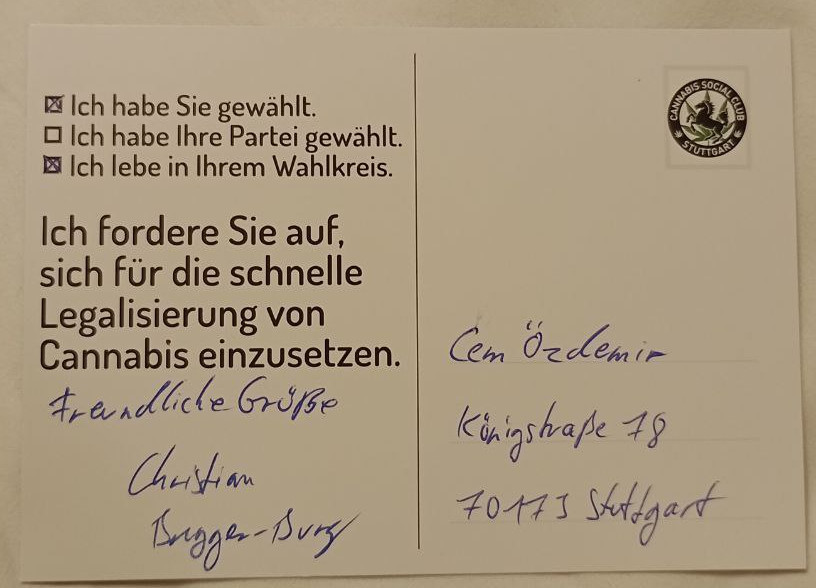 Ich habe Sie gewählt.
Ich habe Ihre Partei gewählt.
Ich lebe in Ihrem Wahlkreis.
Ich fordere Sie auf,
sich für die schnelle
Legalisierung von
Cannabis einzusetzen.
Freundliche Grüße
Christian
CANNABIS SOCIAL CLUB
STUTTGART
Cem Özdemir
Königstraße 78
70173 Stuttgart